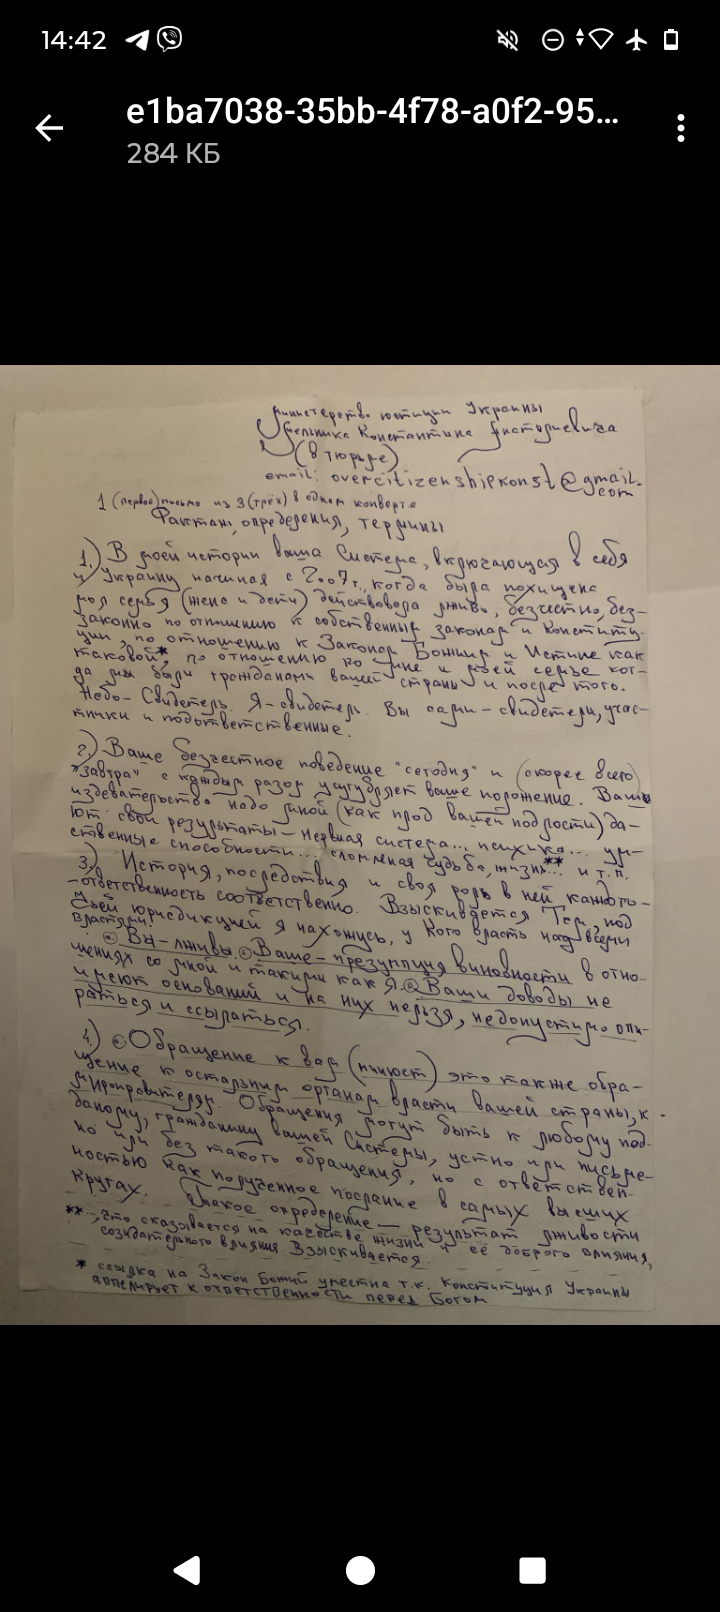 14:42
e1ba7038-35bb-4f78-a0f2-95...
284 КБ
Министерство юстиции Украины
Мельника Константина Анатолиевича
(в тюрьме)
email: overcitizenshipkonst@gmail.
com
1 (первое) письмо из 3 (трёх) в одном конверте
Факты, определения, термины
1.) В моей истории ваша Система, включающая в себя
и Украину начиная с 2007г., когда была похищена
моя семья (жена и дети) действовала лживо, безчестно, без-
законно по отношению к собственным законам и Конститу-
ции, по отношению к Законам Божиим и Истине как
таковой*, по отношению ко мне и моей семье ког-
да мы были гражданами вашей страны и после того.
Небо-Свидетель. Я-свидетель. Вы сами-свидетели, учас-
тники и подответственные.
2.) Ваше безчестное поведение "сегодня" и (скорее всего)
"завтра" с каждым разом усугубляет ваше положение. Ваши
издевательства надо мной (как плод вашей подлости) да-
ют свои результаты - нервная система... психика... ум-
ственные способности... сломленая судьба, жизнь...** и т.п.
3.) История, последствия и своя роль в ней каждого-
-ответственность соответственно. Взыскивается Тем, под
Чьей юрисдикцией я нахожусь, у Кого власть над всеми
властями.
Вы-лживы. Ваше-презумпция виновности в отно-
шениях со мной и такими как Я. Ваши доводы не
имеют оснований и на них нельзя, недопустимо опи-
раться и ссылаться.
4.) Обращение к вам (минюст) это также обра-
щение к остальным органам власти вашей страны, к
мироправителям. Обращения могут быть к любому под-
даному, гражданину вашей Системы, устно или письме-
но или без такого обращения, но с ответствен-
ностью как порученное послание в самых высших
кругах. Такое определение - результат лживости
**..., что сказывается на качестве жизни и её доброго влияния,
созидательного влияния. Взыскивается.
* ссылка на Закон Божий уместна т.к. Конституция Украины
аппелирует к ответственности перед Богом